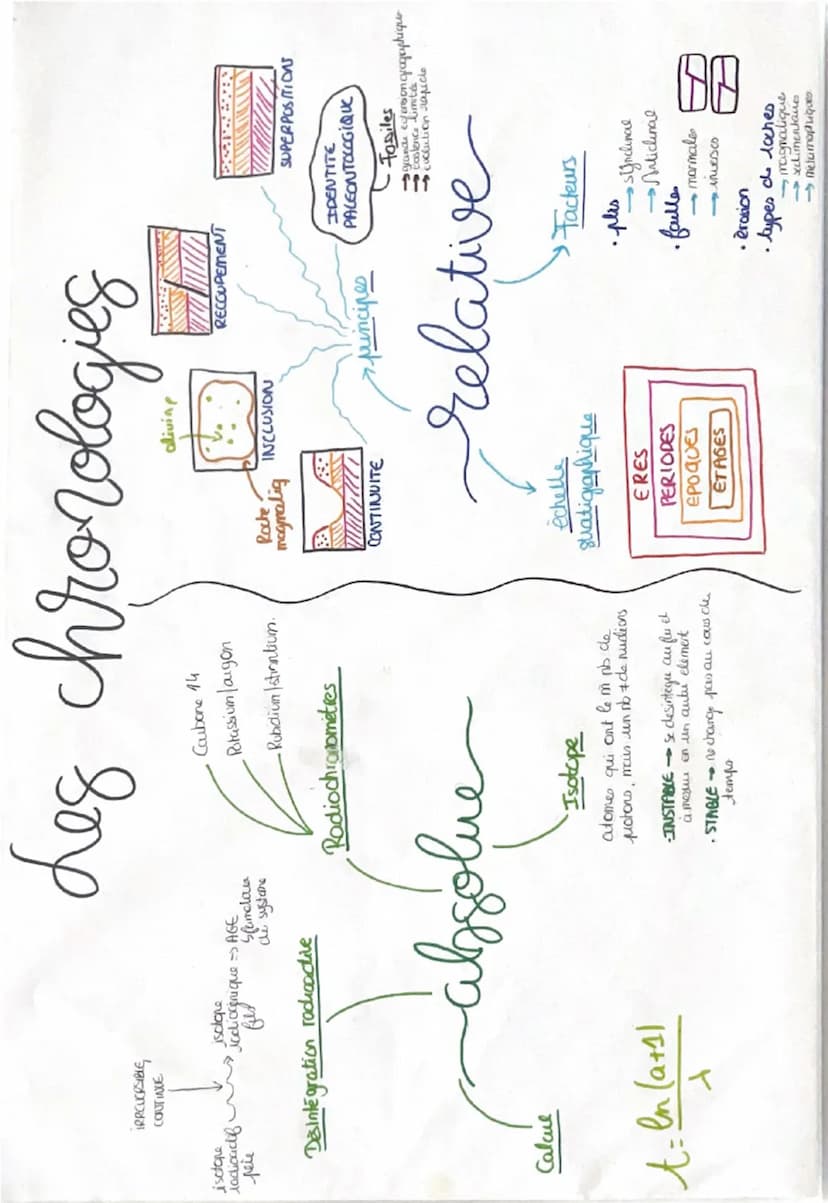 Les chronologies
absolue
Désintégration radioactive
IRREVERSIBLE
CONTINUE
isotope
radioactif
père
isotope
radiogénique
fils
=> AGE
fermeture
de système
Radiochronomètres
Carbone 14
Potassium/argon
Rubidium/strontium.
Calcul
t = ln(a+1)
λ
Isotope
atomes qui ont le m̂ nb de
protons, mais un nb ≠ de nucléons
• INSTABLE → se désintègre au fur et
à mesure en un autre élément
• STABLE → ne change pas au cours du
temps
relative
principes
CONTINUITÉ
INCLUSION
olivine
Roche
magmatiq
RECOUPEMENT
SUPERPOSITIONS
IDENTITÉ
PALEONTOLOGIQUE
Fossiles
→ grande extension géographique
→ existence limitée
→ évolution rapide
Échelle
stratigraphique
ERES
PERIODES
EPOQUES
ETAGES
Facteurs
• plis
→ synclinal
→ Anticlinal
• faille
→ normale
→ inverse
• érosion
• types de roches
→ magmatique
→ sédimentaires
→ métamorphiques